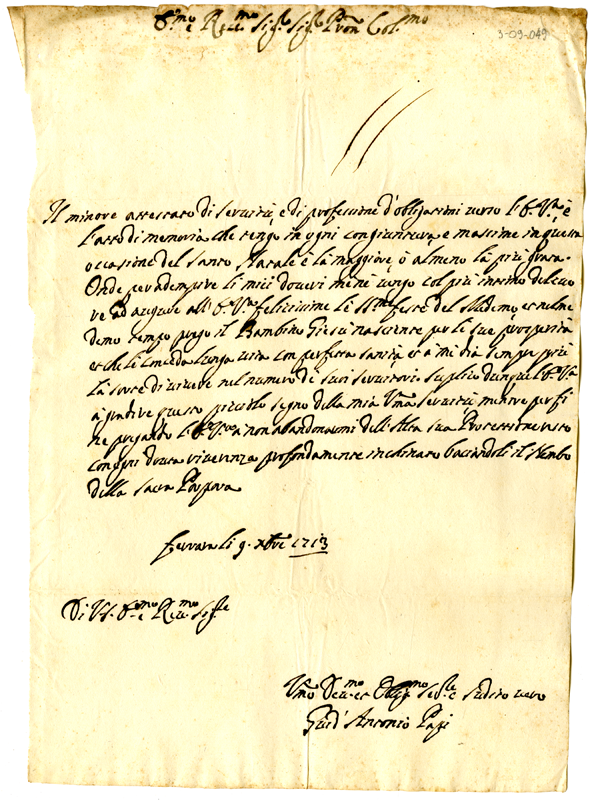 E.mo e Rev.mo Sig.r Sig.r Pron Col.mo
3-09-049
Il minore attestato di servitù, e di professione d'obligationi verso l'E. V.ra è
l'atto di memoria che tengo in ogni congiuntura, e massime in questa
occasione del Santo Natale è la maggiore, ò almeno la più grata.
Onde per adempire li miei doveri mene vengo col più intimo del cuo
re ad augurare all'E. V.ra felicissime le S.me feste del Med.mo, et nel me
demo tempo prego il Bambino Giesù nascente per le sue prosperità
et che li conceda longa vita con perfetta sanità, et à mi dia sempre più
la sorte di vivere nel numero de suoi servitori. Suplico dunque l'E. V.ra
à gradire questo piccolo segno della mia U.ma servitù, mentre per fi
ne pregando l'E. V.ra à non abandonarmi dell'Alta sua Protettione resto
con ogni dovuta riverenza profondamente inchinato baciandoli il lembo
della sacra Porpora
Ferrara li 9. Xbre 1713
Di V. E. E.mo e Rev.mo Sig.re
U.mo Dev. et Oblig.mo Ser.re e Sudito vero
Guid' Antonio Papi